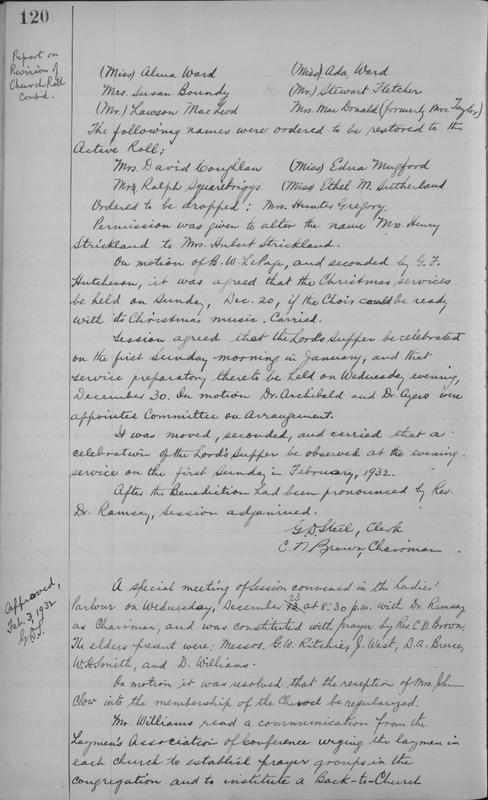 120
Report on
Revision of
Church Roll
contd.
(Miss) Alma Ward (Miss) Ada Ward
Mrs. Susan Boundy (Mr.) Stewart Fletcher
(Mr.) Lawson MacLeod Mrs. MacDonald (formerly Mrs. Taylor)
The following names were ordered to be restored to the
Active Roll:
Mrs. David Coughlan (Miss) Edna Mugford
Mrs. Ralph Squarebriggs (Miss) Ethel M. Sutherland
Ordered to be dropped: Mrs. Hunter Gregory.
Permission was given to alter the name Mrs. Henry
Strickland to Mrs. Hubert Strickland.
On motion of B. W. LePage, and seconded by G. F.
Hutcheson, it was agreed that the Christmas services
be held on Sunday, Dec. 20, if the Choir could be ready
with its Christmas music. Carried.
Session agreed that the Lord's Supper be celebrated
on the first Sunday morning in January, and that
service preparatory thereto be held on Wednesday evening,
December 30. On motion Dr. Archibald and Dr. Ayers were
appointed Committee on Arrangement.
It was moved, seconded, and carried that a
celebration of the Lord's Supper be observed at the evening
service on the first Sunday in February, 1932.
After the Benediction had been pronounced by Rev.
Dr. Ramsay, Session adjourned.
G. D. Steel, Clerk
C. N. Brown, Chairman.
Approved,
Feb. 3, 1932
G.D.S.
A special meeting of Session convened in the Ladies'
Parlour on Wednesday, December 23 at 8:30 p.m. with Dr. Ramsay
as Chairman, and was constituted with prayer by Rev. C. N. Brown.
The elders present were: Messrs. G. W. Ritchie, J. West, D. A. Bruce,
W. H. Smith, and D. Williams.
On motion it was resolved that the reception of Mrs. John
Clow into the membership of the Church be regularized.
Mr. Williams read a communication from the
Laymen's Association of Conference urging the laymen in
each church to establish prayer groups in the
congregation and to institute a Back-to-Church